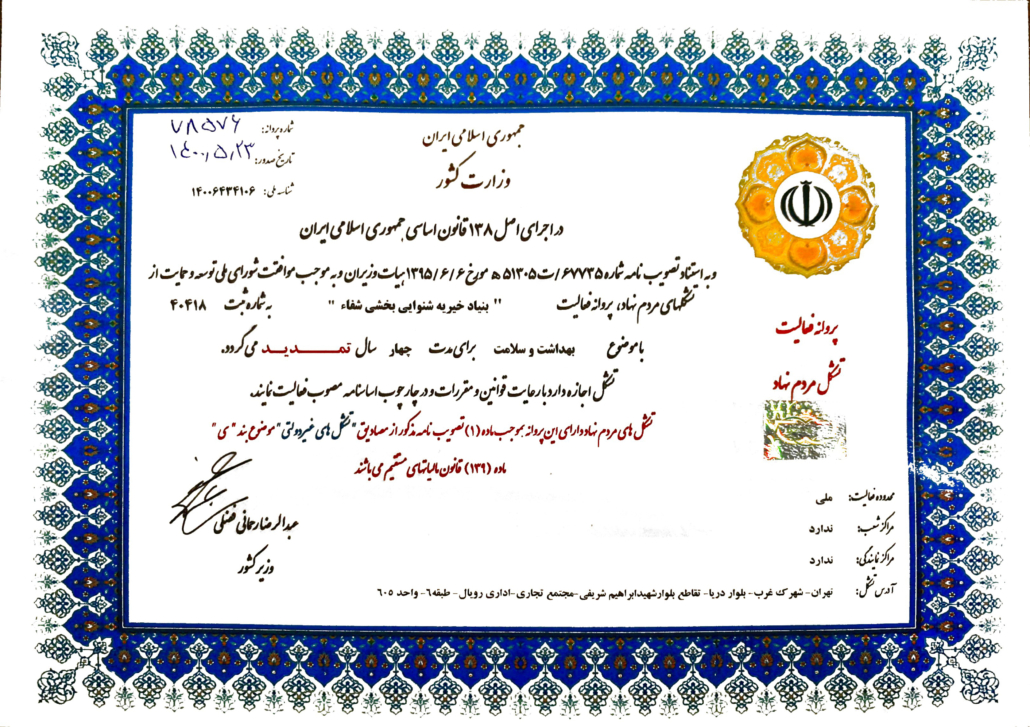 جمهوری اسلامی ایران
وزارت کشور
شماره پروانه: ۷۸۵۷۶
تاریخ صدور: ۱۴۰۰,۵,۲۳
شناسه ملی: ۱۴۰۰۶۴۳۴۱۰۶
در اجرای اصل ۱۳۸ قانون اساسی جمهوری اسلامی ایران
و به استناد تصویب نامه شماره ۶۷۷۳۵/ت۵۱۳۰۵ ه مورخ ۱۳۹۵/۶/۶ هیات وزیران و به موجب موافقت شورای ملی توسعه و حمایت از
تشکلهای مردم نهاد، پروانه فعالیت " بنیاد خیریه شنوایی بخشی شفاء " به شماره ثبت ۴۰۴۱۸
با موضوع بهداشت و سلامت برای مدت چهار سال تمـــدیـد می گردد.
تشکل اجازه دارد با رعایت قوانین و مقررات و در چارچوب اساسنامه مصوب فعالیت نمایند.
تشکل های مردم نهاد دارای این پروانه بموجب ماده (۱) تصویب نامه مذکور از مصادیق "تشکل های غیردولتی" موضوع بند "ی"
ماده (۱۳۹) قانون مالیاتهای مستقیم می باشند
پروانه فعالیت
تشکل مردم نهاد
عبدالرضا رحمانی فضلی
وزیر کشور
محدوده فعالیت: ملی
مراکز شعب: ندارد
مراکز نمایندگی: ندارد
آدرس تشکل: تهران- شهرک غرب- بلوار دریا- تقاطع بلوارشهیدابراهیم شریفی-مجتمع تجاری-اداری رویال- طبقه٦- واحد ٦٠٥